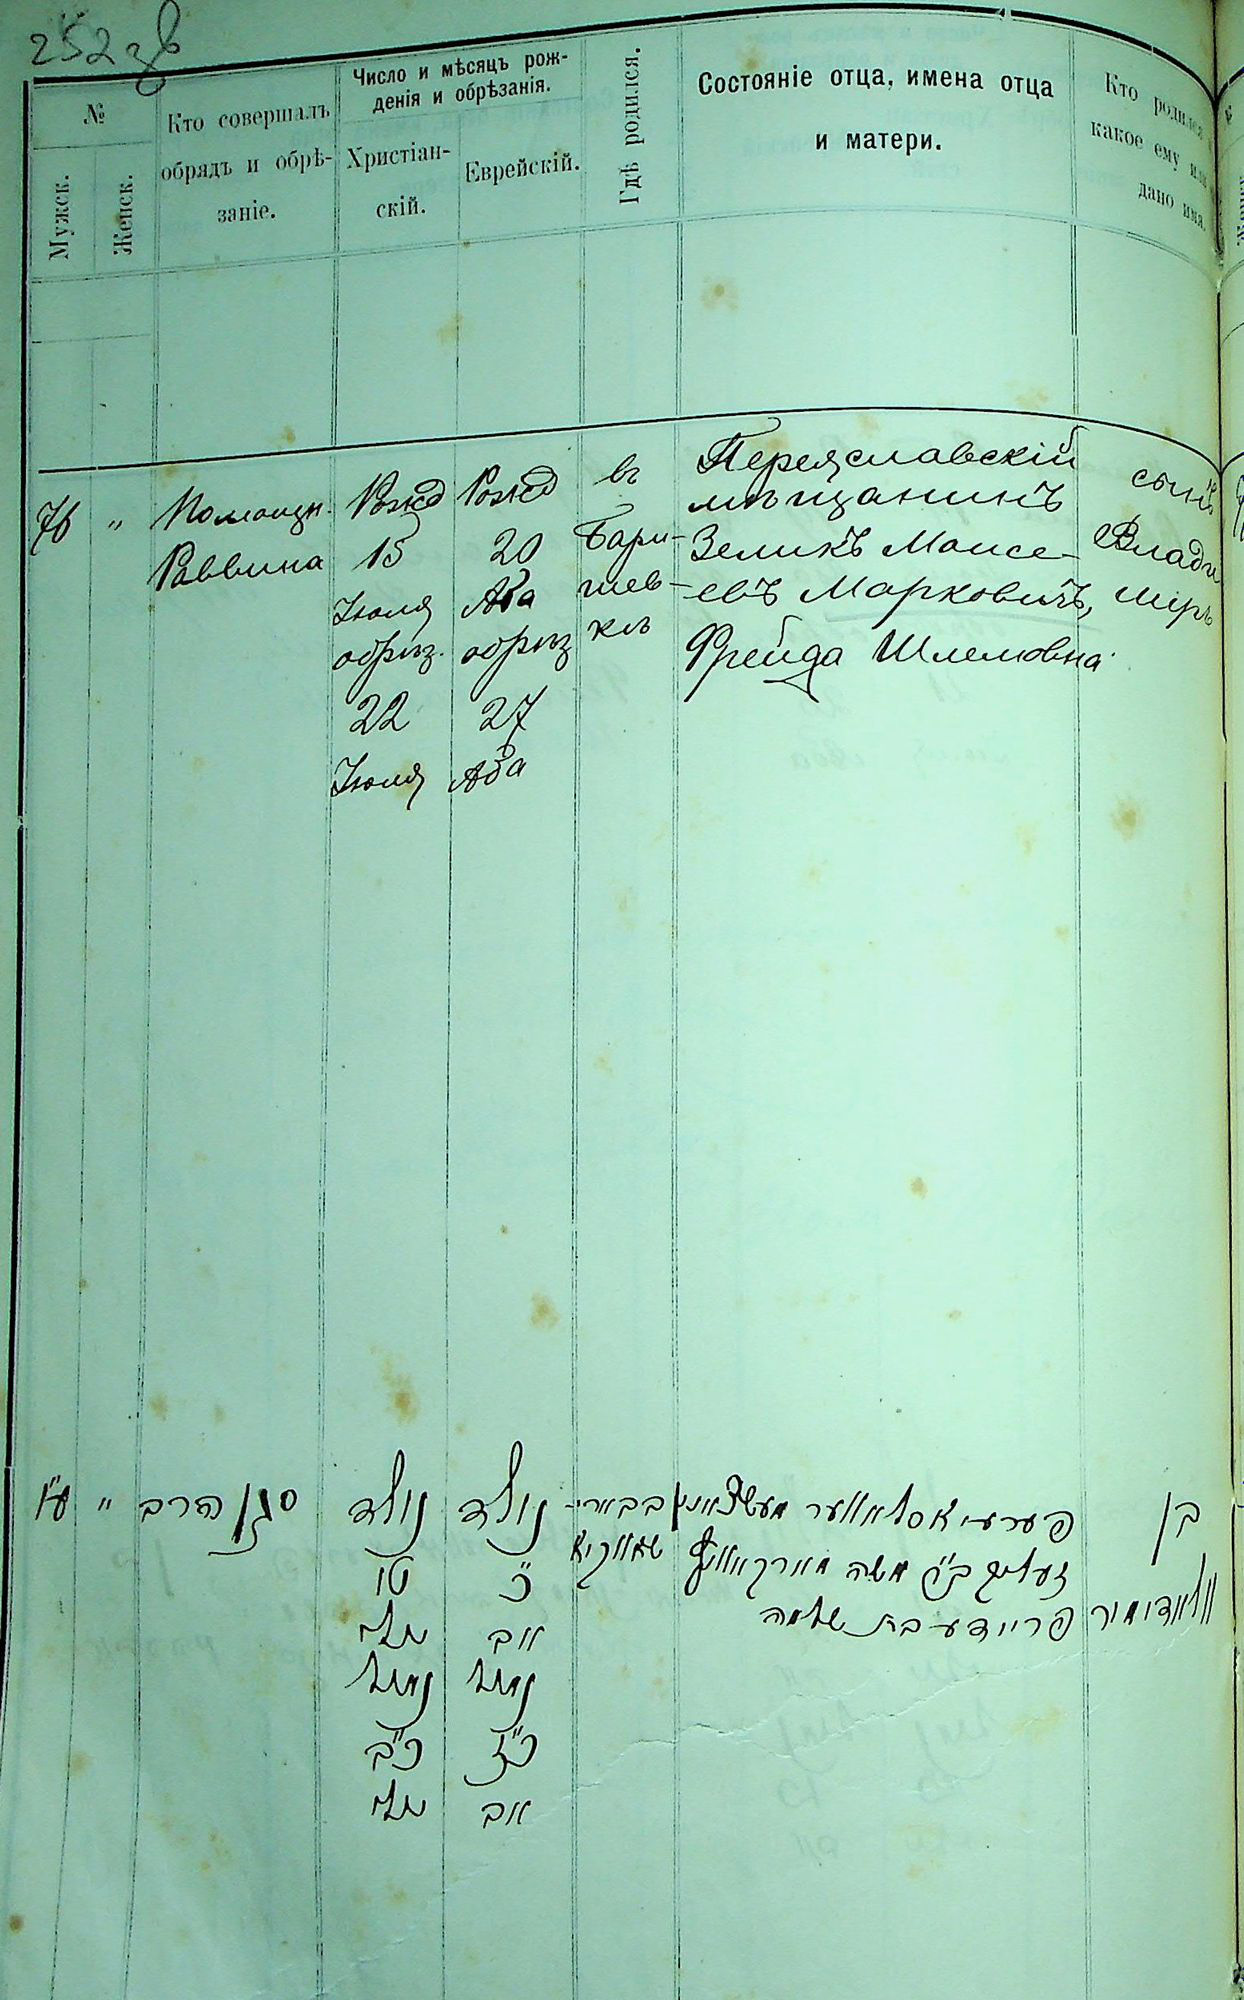 252 зв
№
Мужск.
Женск.
Кто совершалъ
обрядъ и обрѣ-
заніе.
Число и мѣсяцъ рож-
денія и обрѣзанія.
Христіан-
скій.
Еврейскій.
Гдѣ родился.
Состояніе отца, имена отца
и матери.
Кто родился
какое ему или
дано имя.
76 "
Помощн.
Раввина
Рожд
15
Іюля
обрѣз.
22
Іюля
Рожд
20
Ава
обрѣз
27
Ава
въ
Бары-
шев-
кѣ
Переяславскій
мѣщанинъ
Зеликъ Моисе-
евъ Марковичъ,
Фрейда Шлемовна
сынъ
Влади
миръ
ע"ו "
סגן הרב
נולד
טו
יולי
נימול
כ"ב
יולי
נולד
כ"
אב
נימול
כ"ז
אב
בבארי-
שאווקא
פערעיאסלאווער מעשצאנין
זעליג ב"ר משה מארקאוויץ
פריידע בת שלמה
בן
וולאדימיר